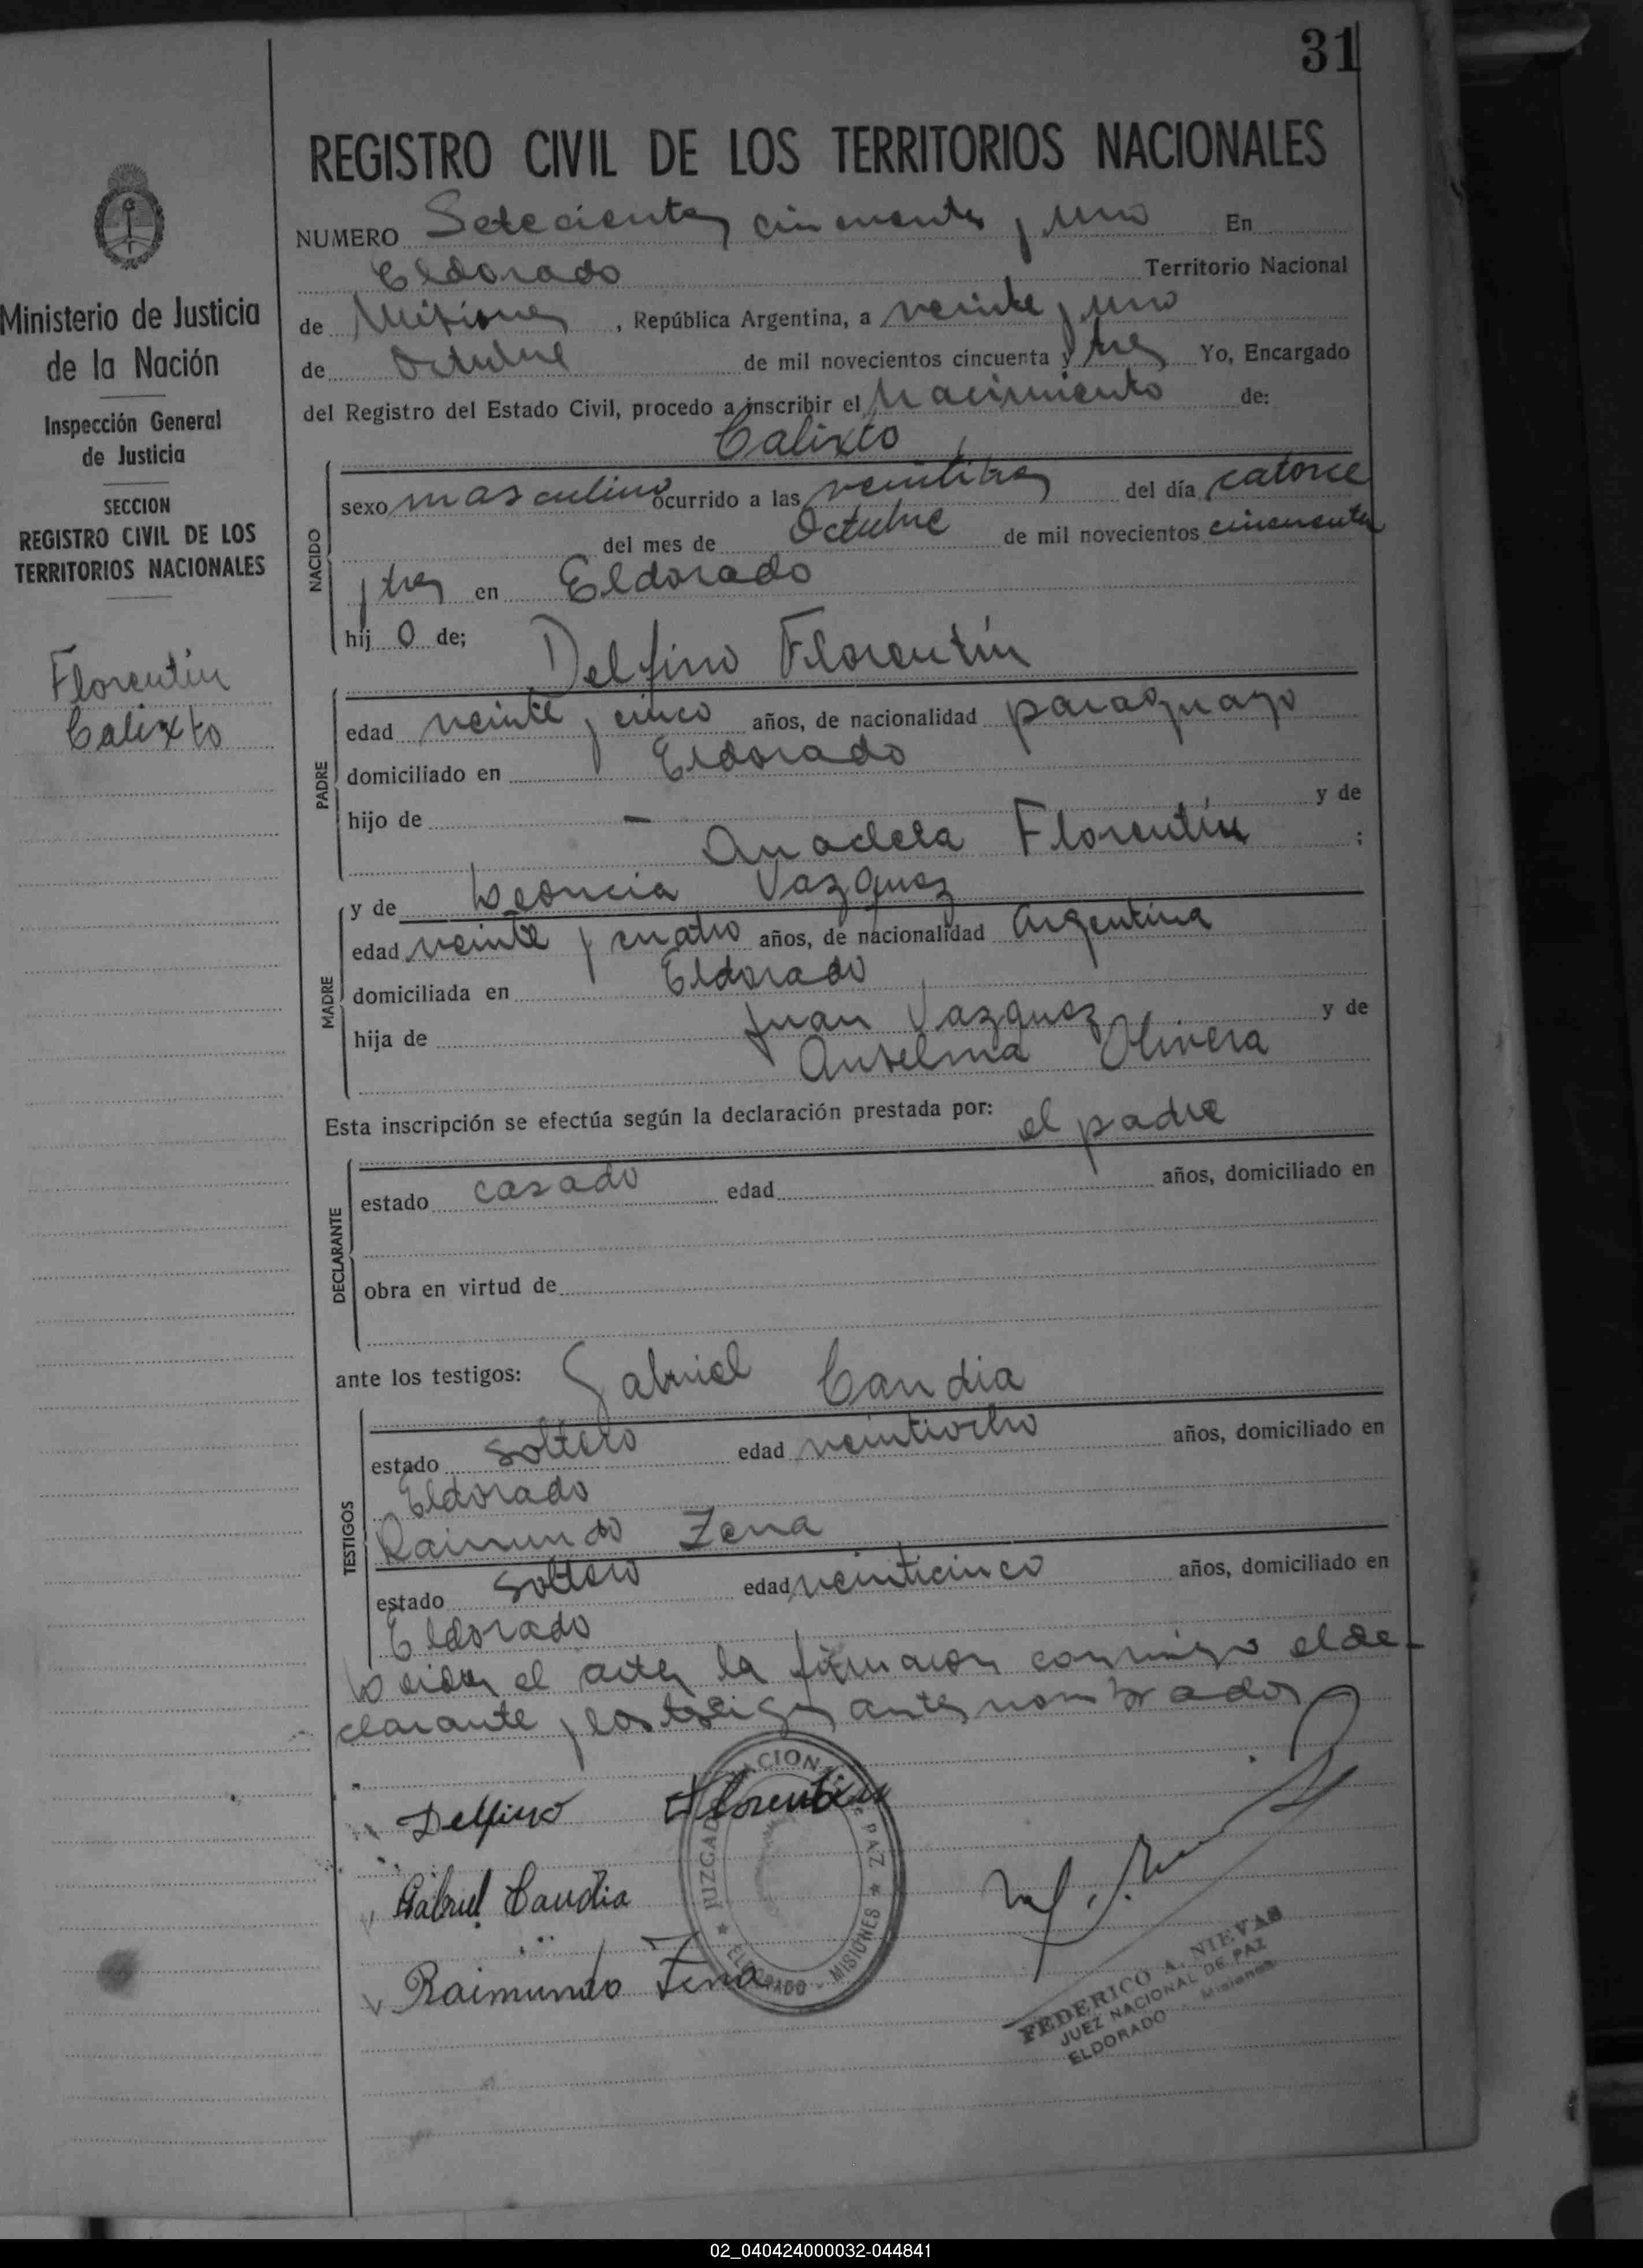 31
REGISTRO CIVIL DE LOS TERRITORIOS NACIONALES
NUMERO Setecientos cincuenta y uno En
Eldorado Territorio Nacional
de Misiones, República Argentina, a veinte y uno
de Octubre de mil novecientos cincuenta y tres Yo, Encargado
del Registro del Estado Civil, procedo a inscribir el Nacimiento de:
Calixto
NACIDO
sexo masculino ocurrido a las veintitres del día catorce
del mes de Octubre de mil novecientos cincuenta
y tres en Eldorado
hij o de;
Delfino Florentín
PADRE
edad veinte y cinco años, de nacionalidad paraguayo
domiciliado en Eldorado
hijo de — y de
Anadela Florentín ;
y de Leoncia Vazquez
MADRE
edad veinte y cuatro años, de nacionalidad Argentina
domiciliada en Eldorado
hija de Juan Vazquez y de
Anselma Olivera
Esta inscripción se efectúa según la declaración prestada por: el padre
DECLARANTE
estado casado edad años, domiciliado en
obra en virtud de
ante los testigos: Gabriel Candia
TESTIGOS
estado soltero edad veintiocho años, domiciliado en
Eldorado
Raimundo Zena
estado soltero edad veinticinco años, domiciliado en
Eldorado
Leida el acta la firmaron conmigo el de-
clarante y los testigos antes nombrados
Delfino Florentin
Gabriel Candia
Raimundo Zena
JUZGADO NACIONAL PAZ
ELDORADO - MISIONES
FEDERICO A. NIEVAS
JUEZ NACIONAL DE PAZ
ELDORADO - Misiones
Ministerio de Justicia
de la Nación
Inspección General
de Justicia
SECCION
REGISTRO CIVIL DE LOS
TERRITORIOS NACIONALES
Florentin
Calixto
02_040424000032-044841